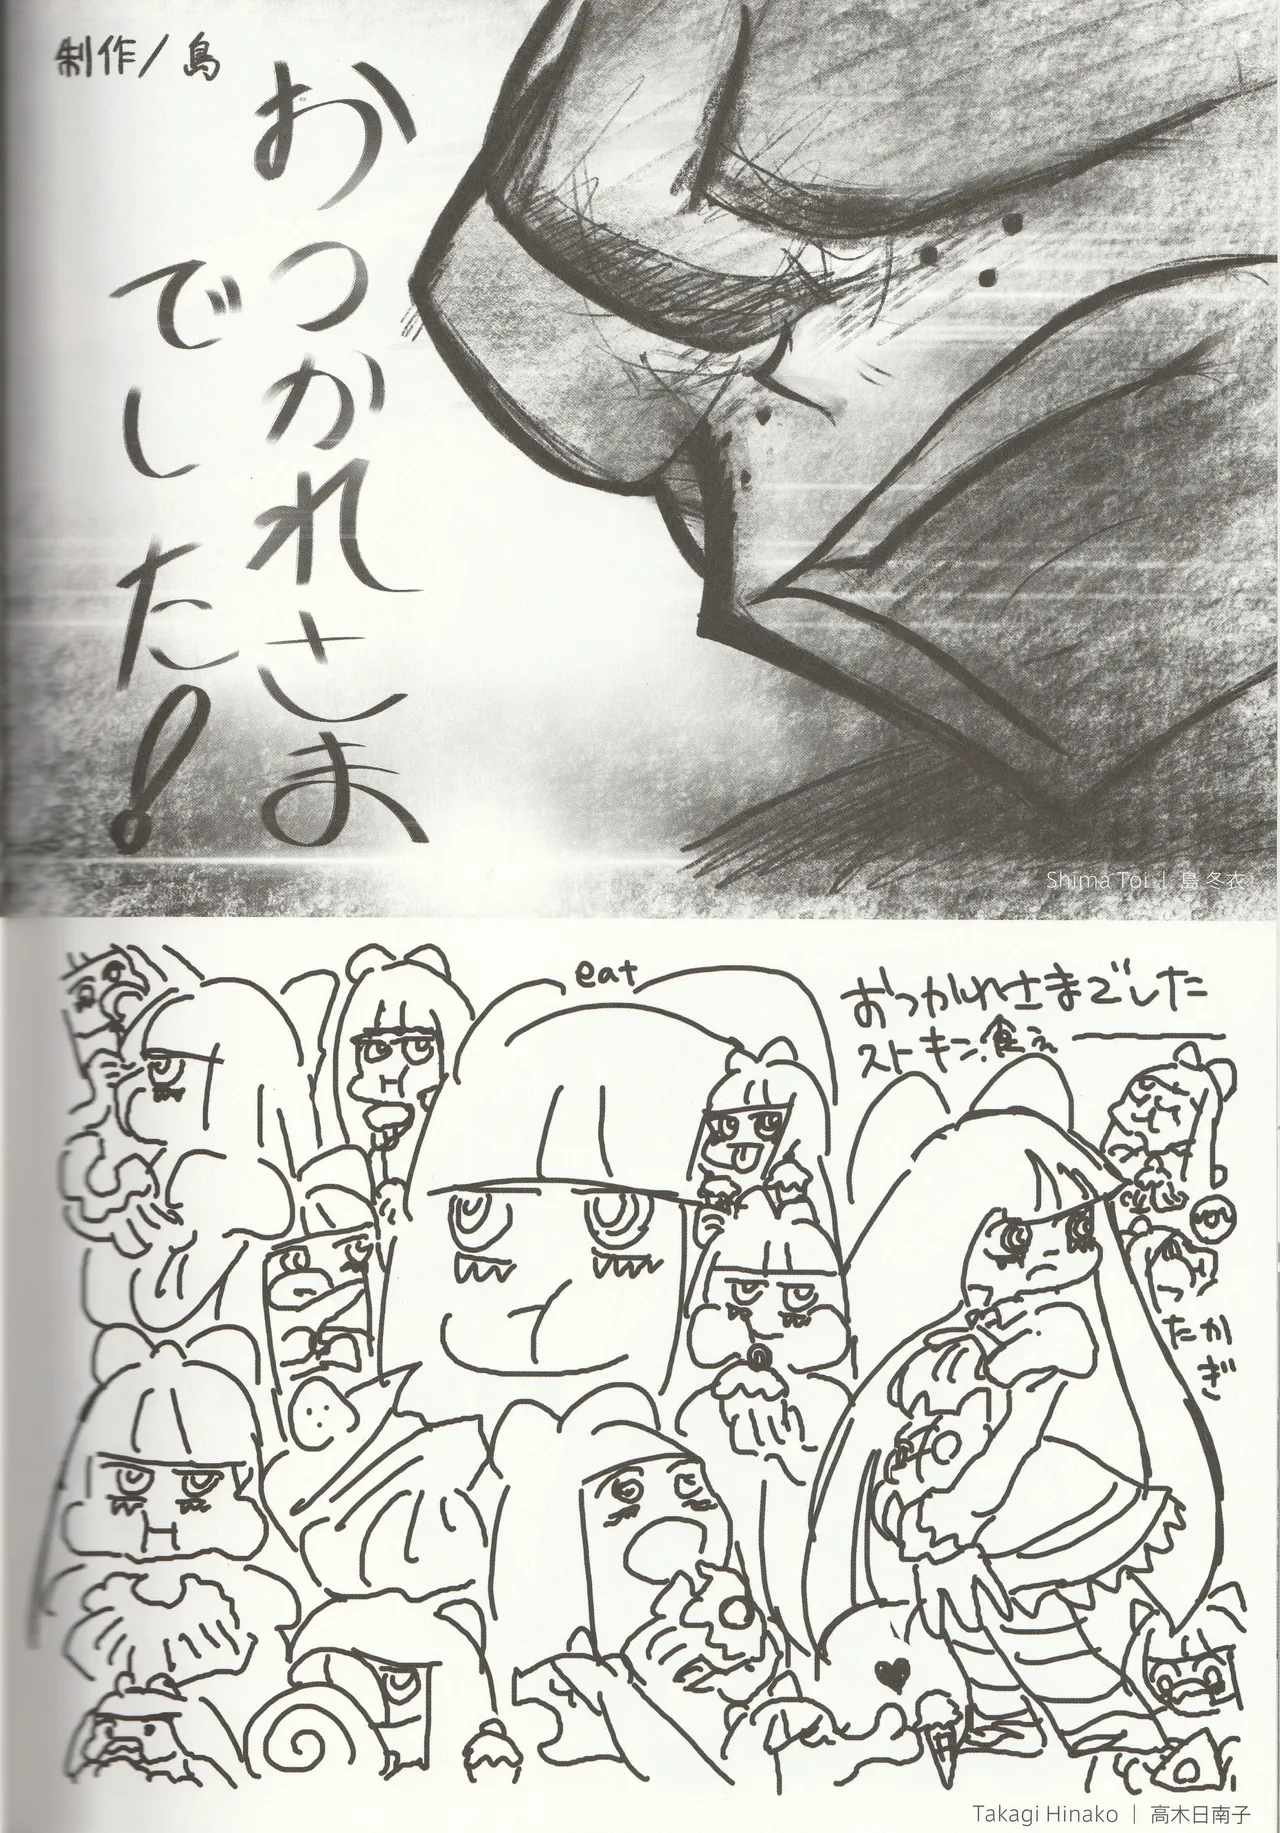 制作/島
おつかれさま
でした!
Shima Toi | 島 冬衣
eat
おつかれさまでした
ストキン食え
たかぎ
Takagi Hinako | 高木日南子